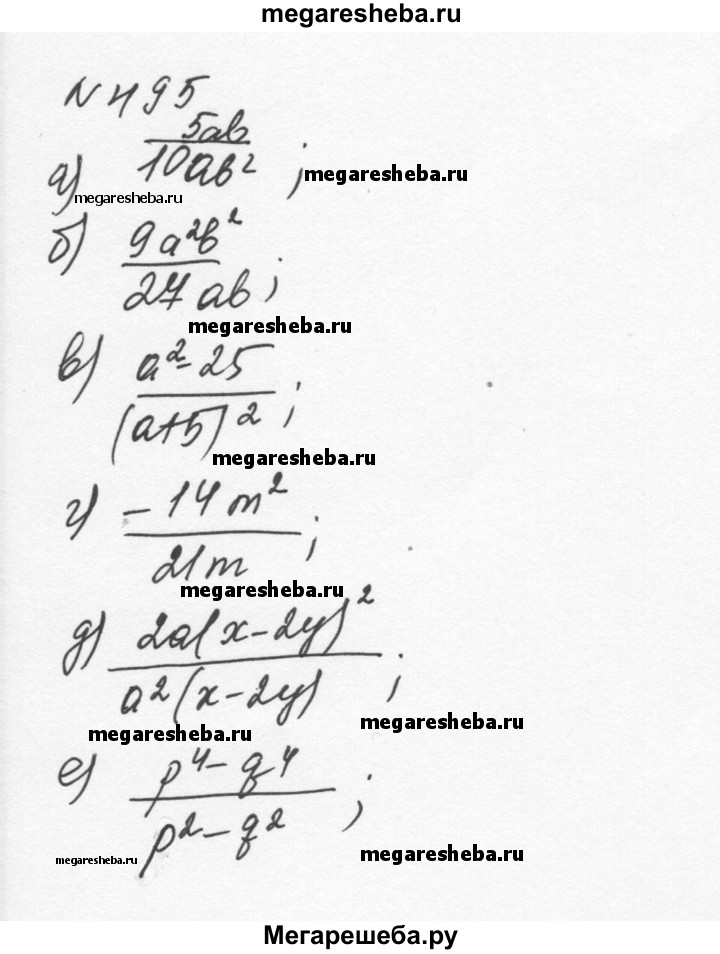 megaresheba.ru
N 495
а) 5ab/10ab² ; megaresheba.ru
megaresheba.ru
б) 9a²b²/27ab ;
megaresheba.ru
в) a²-25/(a+5)² ;
megaresheba.ru
г) -14m²/21m ;
megaresheba.ru
д) 2a(x-2y)²/a²(x-2y) ;
megaresheba.ru
megaresheba.ru
е) p⁴-q⁴/p²-q² ;
megaresheba.ru
megaresheba.ru
Мегарешеба.ру